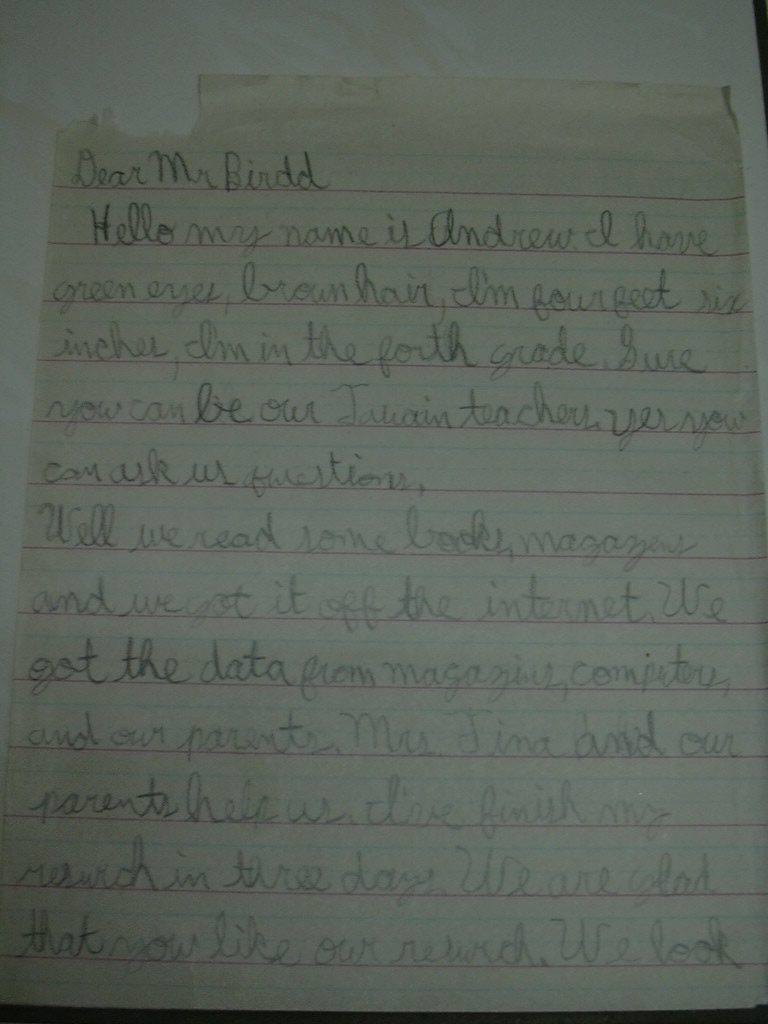 Dear Mr Birdd
Hello my name is Andrew. I have
green eyes, brown hair, I'm four feet six
inches, I'm in the forth grade. Sure
you can be our teacher. yes you
can ask us questions,
Well we read some books, magazens
and we got it off the internet. We
got the data from magazins, computers,
and our parents. Mrs. Tina and our
parents help us. I've finish my
reserch in three days. We are glad
that you like our reserch. We look